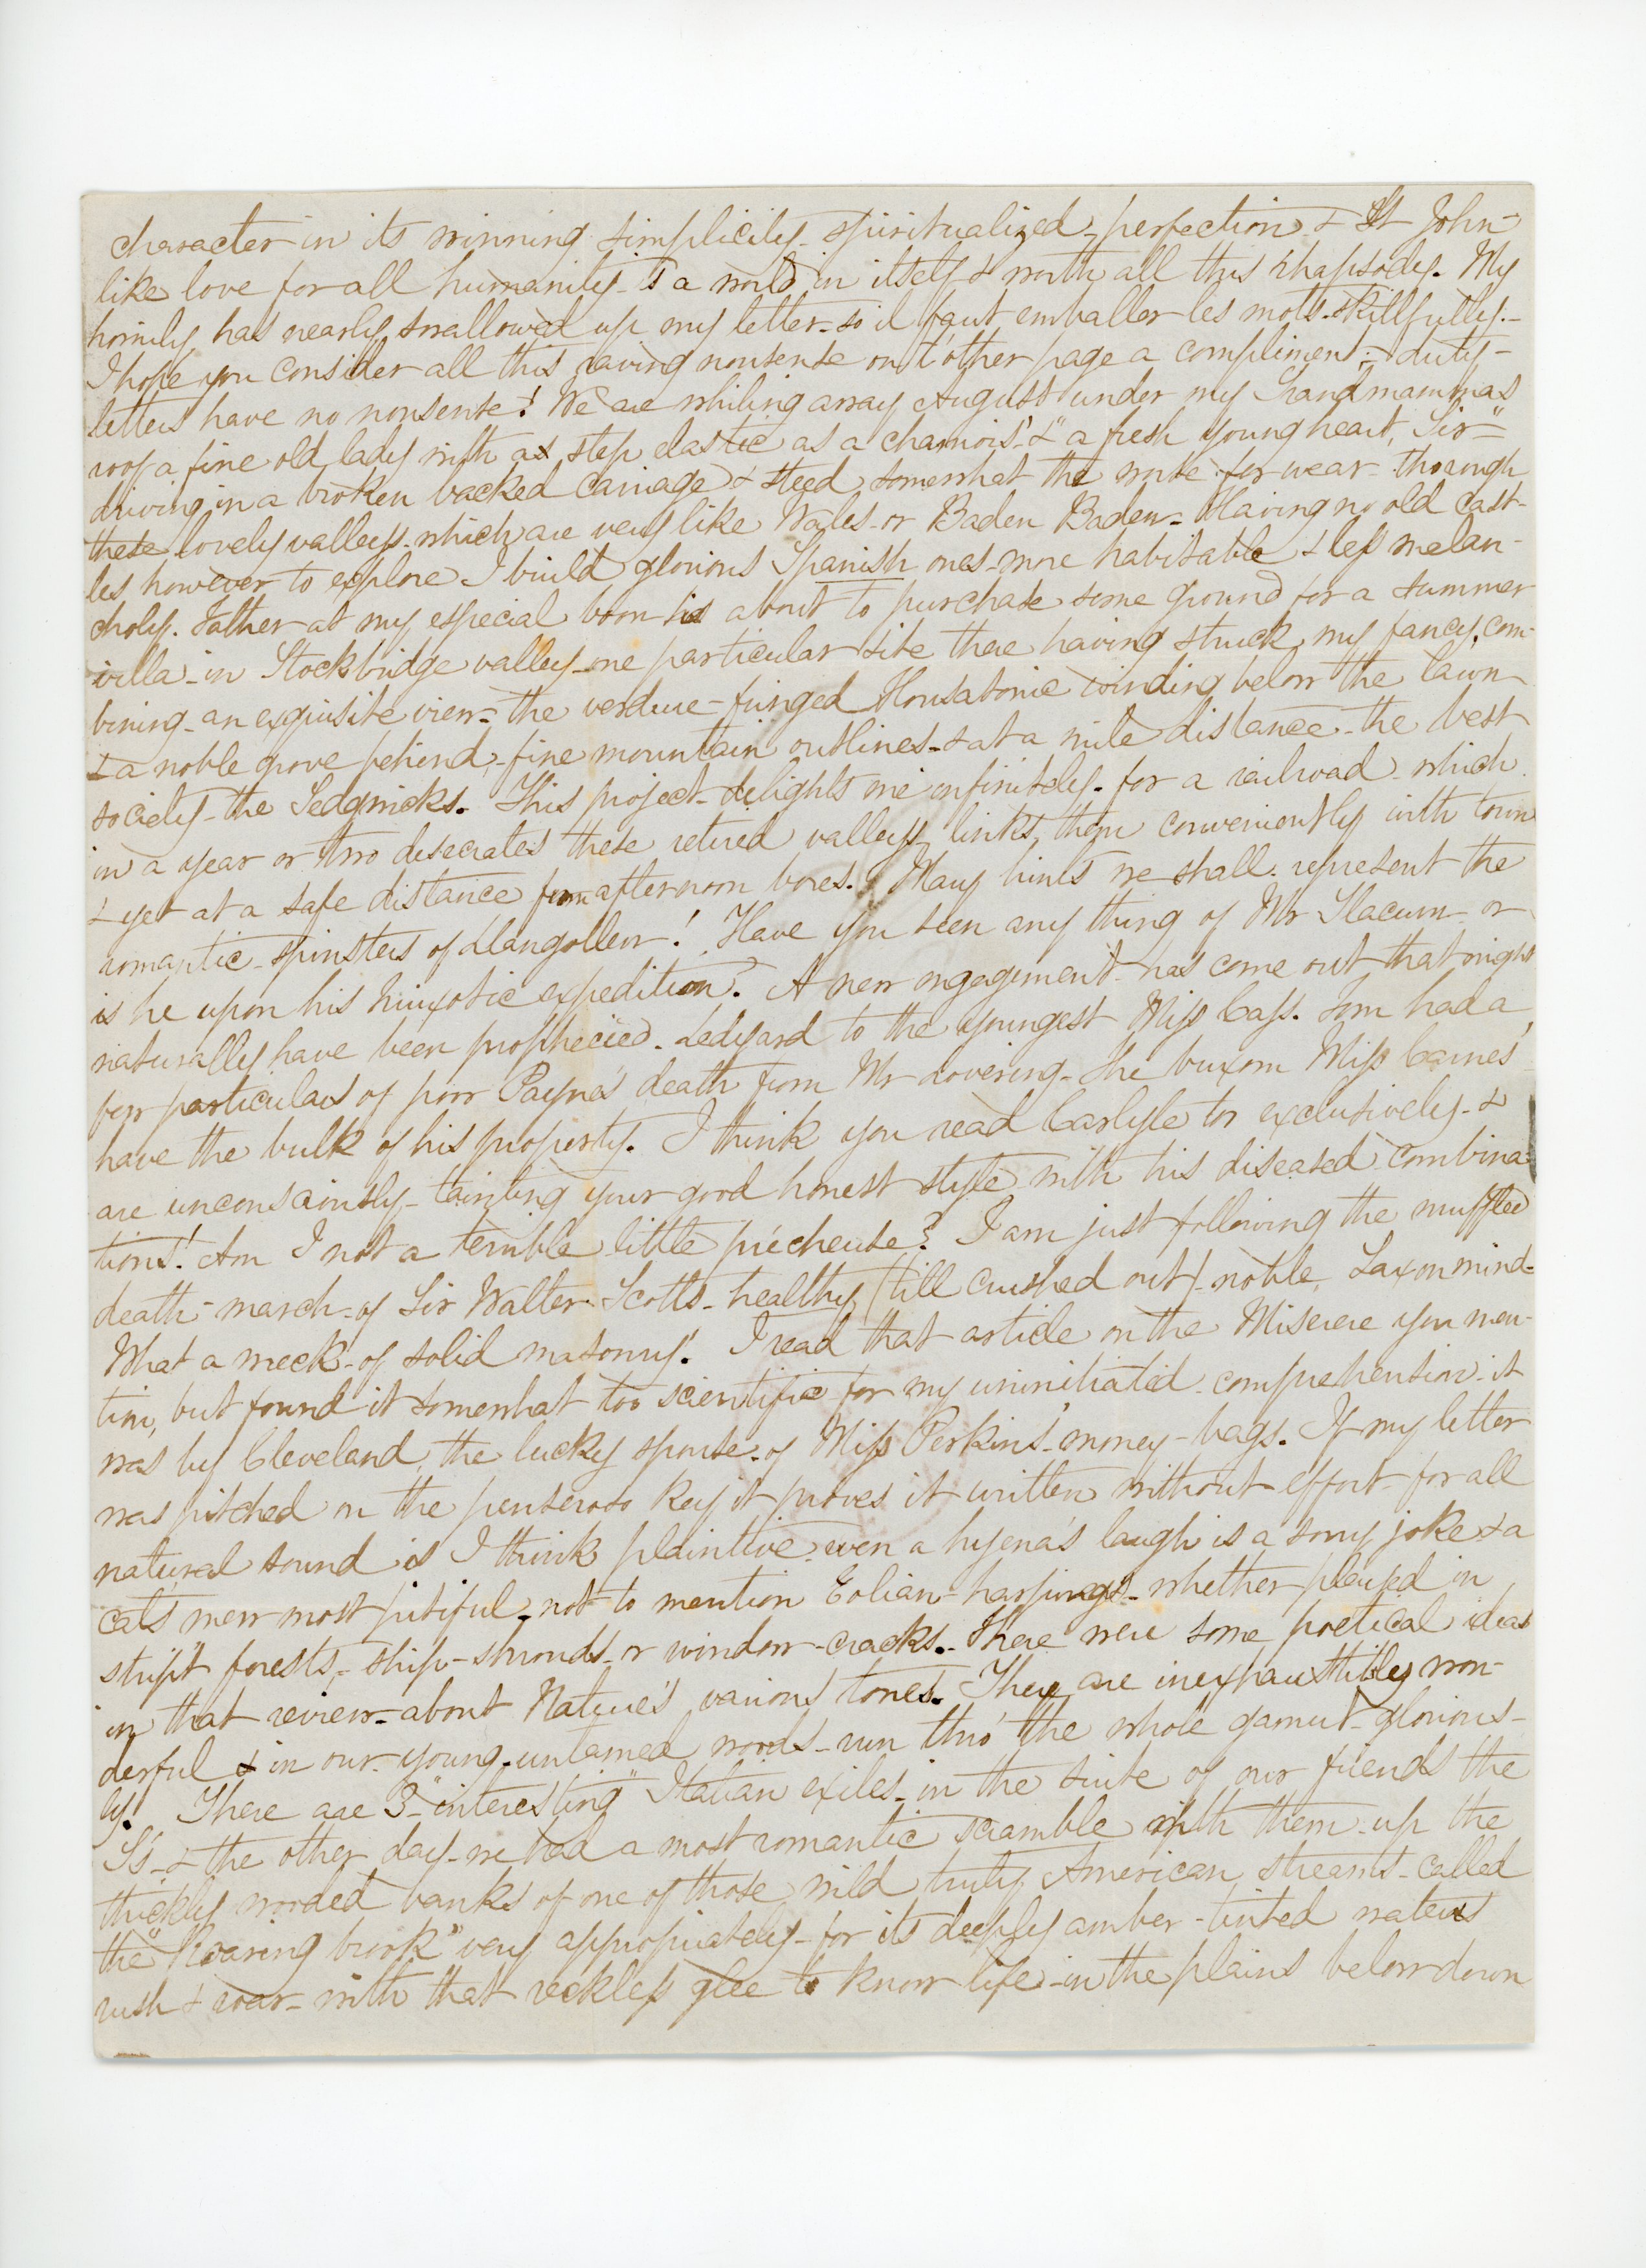 character in its winning simplicity - spiritualized - perfection & St John -
like love for all humanity - is a world in itself & worth all this rhapsody. My
homily has nearly swallowed up my letter - so il faut emballer les mots - skillfully. -
I hope you consider all this raving nonsense on t'other page a compliment; - duty -
letters have no nonsense! We are whiling away August under my Grandmamma's
roof a fine old lady with a step elastic as a chamois' & "a fresh young heart, Sir" =
driving in a broken backed carriage & steed somewhat the worse for wear - through
these lovely valleys - which are very like Wales - or Baden Baden - Having no old cast-
les however to explore I build glorious Spanish ones - more habitable & less melan-
choly. Father at my especial boon is about to purchase some ground for a summer
villa - in Stockbridge valley - one particular site there having struck my fancy, com-
bining - an exquisite view - the verdure - fringed Housatonic winding below the lawn -
& a noble grove behind, - fine mountain outlines - & at a mile distance - the best
society - the Sedgwicks. This project - delights me infinitely - for a railroad - which
in a year or two desecrates these retired valleys, links them conveniently with town
& yet at a safe distance from afternoon bores. Many hints we shall represent the
romantic - spinsters of Llangollen! Have you seen any thing of Mr Slacum - or
is he upon his Quixotic expedition? A new engagement has come out that might
naturally have been prophecied - Ledyard to the youngest Miss Cass. Tom had a
few particulars of poor Payne's death from Mr Lovering - the buxom Miss Carnes'
have the bulk of his property. I think you read Carlyle too exclusively - &
are unconsciously - tainting your good honest style with his diseased combina-
tions! Am I not a terrible little prêcheuse? I am just following the muffled
death - march - of Sir Walter Scott's - healthy (till crushed out) - noble, Saxon mind -
What a wreck - of solid masonry! I read that article on the Miserere you men-
tion, but found it somewhat too scientific for my uninitiated - comprehension - it
was by Cleveland, the lucky spouse - of Miss Perkins' - money - bags. If my letter
was pitched on the penseroso key it proves it written without effort - for all
natural sound is I think plaintive - even a hyena's laugh is a sorry joke & a
cat's mew most pitiful - not to mention Eolian - harpings - whether played in
stript forests, - ship - shrouds - or window - cracks. - There were some poetical ideas
in that review - about Nature's various tones. They are inexhaustibly won-
derful & in our - young - untamed woods - run thro' the whole gamut - glorious -
ly! There are 3 - "interesting" Italian exiles - in the suite of our friends the
S's - & the other day - we had a most romantic scramble with them - up the
thickly wooded banks of one of those wild truly American streams - called
the "Roaring brook" very appropriately - for its deeply amber - tinted waters
rush & roar - with that reckless glee to know life - in the plains below down